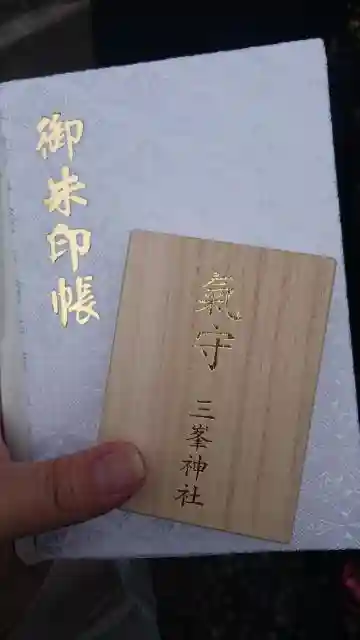 御朱印帳
氣守
三峯神社